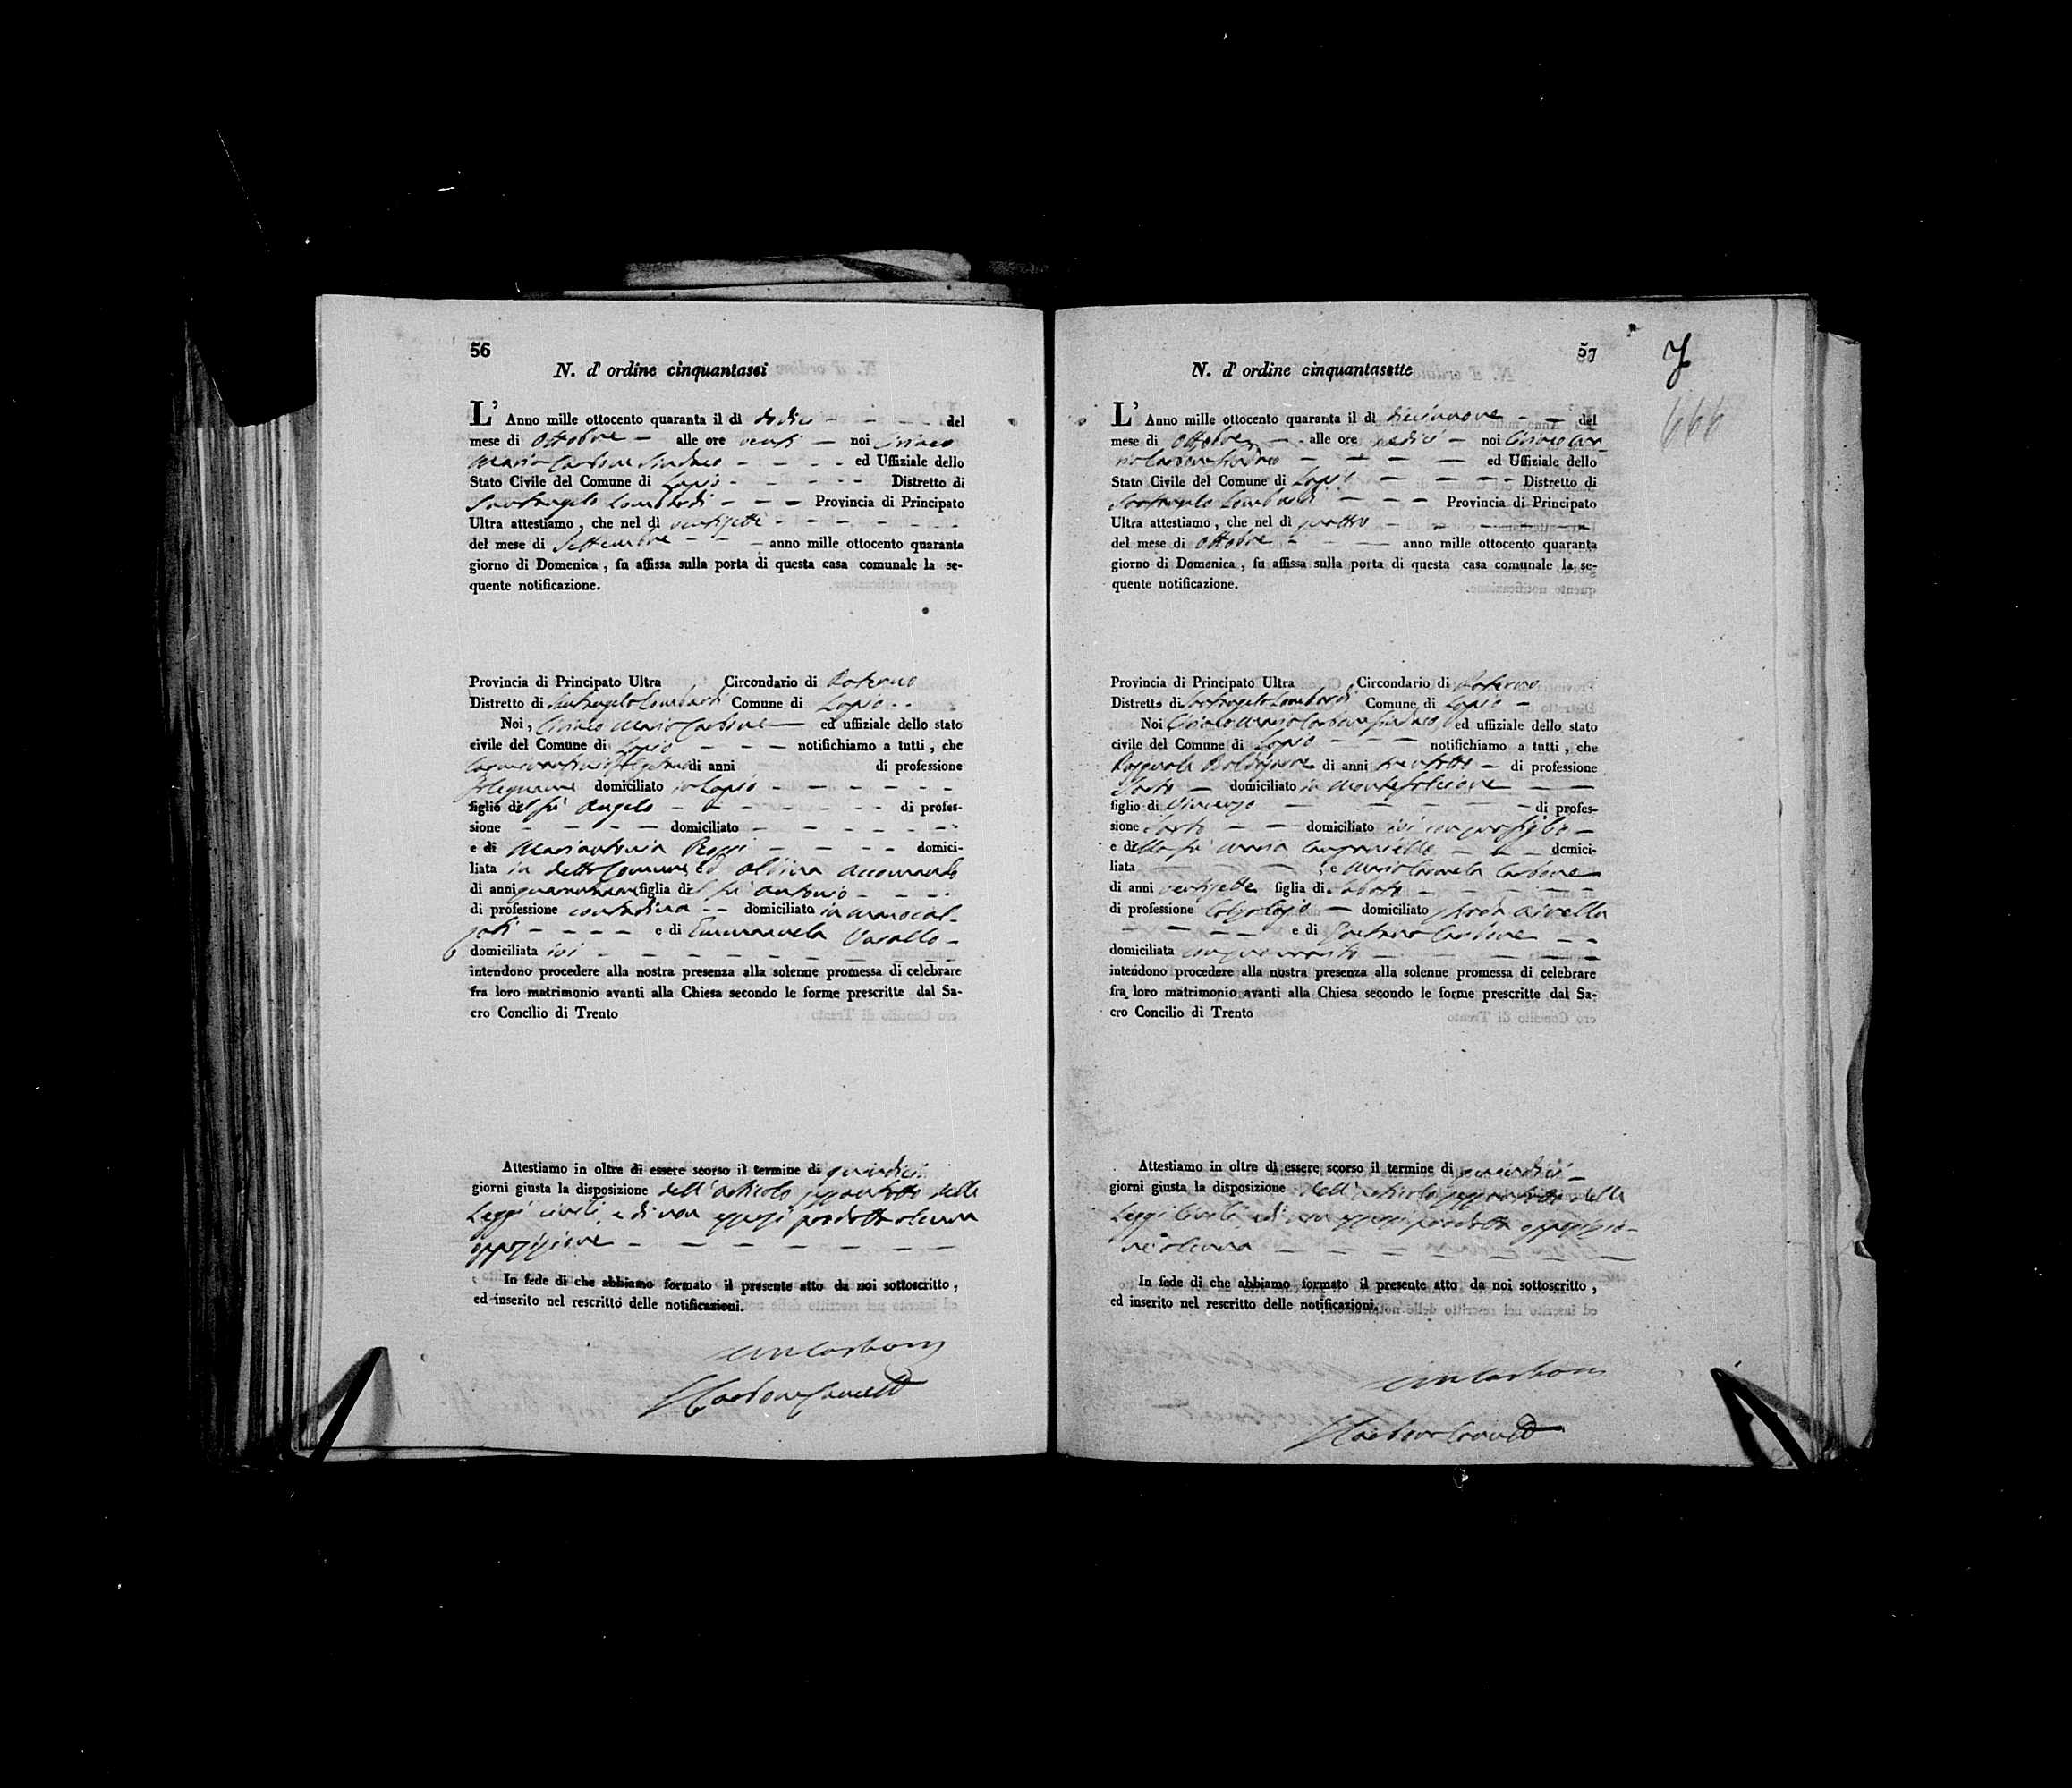 56
N. d' ordine cinquantasei
L' Anno mille ottocento quaranta il dì dodici del
mese di Ottobre alle ore venti noi Ciriaco
Maria Carbone Sindaco ed Uffiziale dello
Stato Civile del Comune di Lapio Distretto di
Santangelo Lombardi Provincia di Principato
Ultra attestiamo, che nel dì ventisette
del mese di Settembre anno mille ottocento quaranta
giorno di Domenica, fu affissa sulla porta di questa casa comunale la se-
quente notificazione.
Provincia di Principato Ultra Circondario di Paterno
Distretto di Santangelo Lombardi Comune di Lapio
Noi, Ciriaco Maria Carbone ed uffiziale dello stato
civile del Comune di Lapio notifichiamo a tutti, che
di anni di professione
falegname domiciliato in Lapio
figlio del fu Angelo di profes-
sione domiciliato
e di Mariantonia domici-
liata in detto Comune, ed Albina Accomando
di anni figlia del fu Antonio
di professione contadina domiciliato in Manocal-
zati e di Emmanuela Vasallo
domiciliata ivi
intendono procedere alla nostra presenza alla solenne promessa di celebrare
fra loro matrimonio avanti alla Chiesa secondo le forme prescritte dal Sa-
cro Concilio di Trento
Attestiamo in oltre di essere scorso il termine di quindici
giorni giusta la disposizione dell'articolo sessantotto delle
Leggi civili, e di non essersi prodotta alcuna
opposizione
In fede di che abbiamo formato il presente atto da noi sottoscritto,
ed inserito nel rescritto delle notificazioni.
CM Carbone
Carbone
57
7
666
N. d' ordine cinquantasette
L' Anno mille ottocento quaranta il dì diciannove del
mese di Ottobre alle ore sedici noi Ciriaco Ma-
ria Carbone Sindaco ed Uffiziale dello
Stato Civile del Comune di Lapio Distretto di
Santangelo Lombardi Provincia di Principato
Ultra attestiamo, che nel dì quattro
del mese di Ottobre anno mille ottocento quaranta
giorno di Domenica, fu affissa sulla porta di questa casa comunale la se-
quente notificazione.
Provincia di Principato Ultra Circondario di Paterno
Distretto di Santangelo Lombardi Comune di Lapio
Noi Ciriaco Maria Carbone Sindaco, ed uffiziale dello stato
civile del Comune di Lapio notifichiamo a tutti, che
Pasquale Baldassarre di anni trentotto di professione
Sarto domiciliato in Montefalcione
figlio di Vincenzo di profes-
sione Sarto domiciliato ivi con suo figlio
e della fu Maria domici-
liata , e Maria Carmela Carbone
di anni ventisette figlia di Sabato
di professione Calzolajo domiciliato
e di Gaetana Carbone
domiciliata con suo marito
intendono procedere alla nostra presenza alla solenne promessa di celebrare
fra loro matrimonio avanti alla Chiesa secondo le forme prescritte dal Sa-
cro Concilio di Trento
Attestiamo in oltre di essere scorso il termine di quindici
giorni giusta la disposizione dell'articolo sessantotto delle
Leggi Civili, e di non essersi prodotta opposizio-
ne alcuna
In fede di che abbiamo formato il presente atto da noi sottoscritto,
ed inserito nel rescritto delle notificazioni.
CM Carbone
Carbone